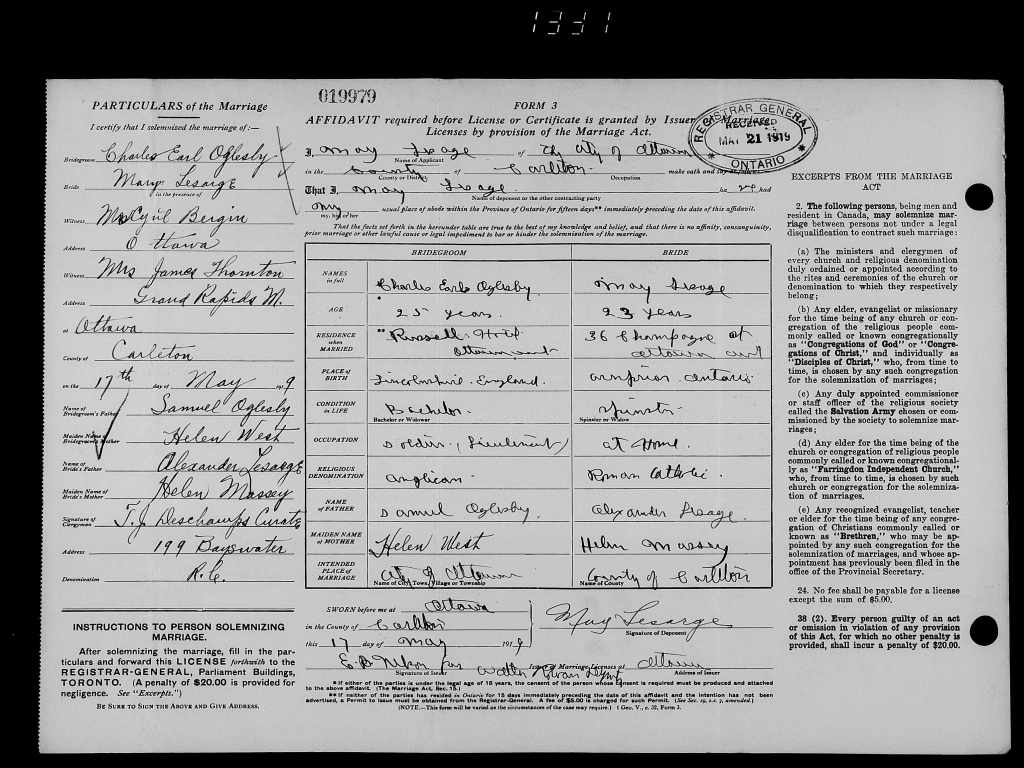 1331
PARTICULARS of the Marriage
I certify that I solemnized the marriage of:—
Bridegroom Charles Earl Oglesby
Bride Mary Lesarge
in the presence of
Witness Bergin
Address Ottawa
Witness Mrs James Thornton
Address Grand Rapids M.
at Ottawa
County of Carleton
on the 17th day of May 1919
Name of Bridegroom's Father Samuel Oglesby
Maiden Name of Bridegroom's Mother Helen West
Name of Bride's Father Alexander Lesarge
Maiden Name of Bride's Mother Helen Massey
Signature of Clergyman T. J. Deschamps Curate
Address 199 Bayswater
Denomination R.C.
INSTRUCTIONS TO PERSON SOLEMNIZING
MARRIAGE.
After solemnizing the marriage, fill in the par-
ticulars and forward this LICENSE forthwith to the
REGISTRAR-GENERAL, Parliament Buildings,
TORONTO. (A penalty of $20.00 is provided for
negligence. See "Excerpts.")
BE SURE TO SIGN THE ABOVE AND GIVE ADDRESS.
019979
FORM 3
AFFIDAVIT required before License or Certificate is granted by Issuer of Marriage
Licenses by provision of the Marriage Act.
REGISTRAR GENERAL
RECEIVED
MAY 21 1919
ONTARIO
I, May Lesage of The City of Ottawa
Name of Applicant
in the County of Carleton make oath and say as follows
County or District Occupation
That I, May Lesage had
Name of deponent or the other contracting party
my usual place of abode within the Province of Ontario for fifteen days** immediately preceding the date of this affidavit.
my, his or her
That the facts set forth in the hereunder table are true to the best of my knowledge and belief, and that there is no affinity, consanguinity,
prior marriage or other lawful cause or legal impediment to bar or hinder the solemnization of the marriage.
BRIDEGROOM BRIDE
NAMES in full Charles Earl Oglesby May Lesage
AGE 25 years. 23 years
RESIDENCE when MARRIED Russell Hotel Ottawa 36 Champagne Ottawa
PLACE OF BIRTH Lincolnshire. England. Arnprior. Ontario
CONDITION IN LIFE Bachelor Spinster
Bachelor or Widower Spinster or Widow
OCCUPATION Soldier, (Lieutenant) at Home.
RELIGIOUS DENOMINATION Anglican Roman Catholic.
NAME OF FATHER Samuel Oglesby. Alexander Lesage.
MAIDEN NAME OF MOTHER Helen West Helen Massey
INTENDED PLACE OF MARRIAGE City of Ottawa County of Carleton
Name of City, Town, Village or Township Name of County
SWORN before me at Ottawa
in the County of Carleton
this 17 day of May 1919
May Lesarge
Signature of Deponent
Issuer of Marriage Licenses at Ottawa
Signature of Issuer Address of Issuer
* If either of the parties is under the legal age of 18 years, the consent of the person whose consent is required must be produced and attached
to the above affidavit. (The Marriage Act, Sec. 15.)
** If neither of the parties has resided in Ontario for 15 days immediately preceding the date of this affidavit and the intention has not been
advertised, a Permit to Issue must be obtained from the Registrar-General. A fee of $5.00 is charged for such Permit. (See Sec. 19, s.s. 7, amended.)
(NOTE.—This form will be varied as the circumstances of the case may require.) 1 Geo. V., c. 32, Form 3.
EXCERPTS FROM THE MARRIAGE
ACT
2. The following persons, being men and
resident in Canada, may solemnize mar-
riage between persons not under a legal
disqualification to contract such marriage:
(a) The ministers and clergymen of
every church and religious denomination
duly ordained or appointed according to
the rites and ceremonies of the church or
denomination to which they respectively
belong;
(b) Any elder, evangelist or missionary
for the time being of any church or con-
gregation of the religious people com-
monly called or known congregationally
as "Congregations of God" or "Congre-
gations of Christ," and individually as
"Disciples of Christ," who, from time to
time, is chosen by any such congregation
for the solemnization of marriages;
(c) Any duly appointed commissioner
or staff officer of the religious society
called the Salvation Army chosen or com-
missioned by the society to solemnize mar-
riages;
(d) Any elder for the time being of the
church or congregation of religious people
commonly called or known congregational-
ly as "Farringdon Independent Church,"
who, from time to time, is chosen by such
church or congregation for the solemniza-
tion of marriages.
(e) Any recognized evangelist, teacher
or elder for the time being of any congre-
gation of Christians commonly called or
known as "Brethren," who may be ap-
pointed by any such congregation for the
solemnization of marriages, and whose ap-
pointment has previously been filed in the
office of the Provincial Secretary.
24. No fee shall be payable for a license
except the sum of $5.00.
38 (2). Every person guilty of an act
or omission in violation of any provision
of this Act, for which no other penalty is
provided, shall incur a penalty of $20.00.